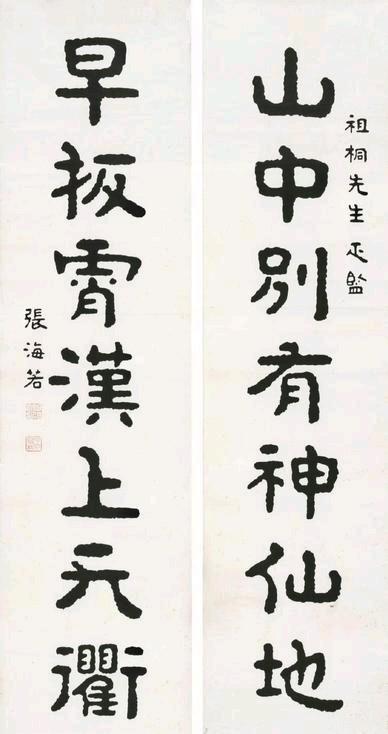 祖桐先生正監
山中別有神仙地
早扳霄漢上天衢
張海若